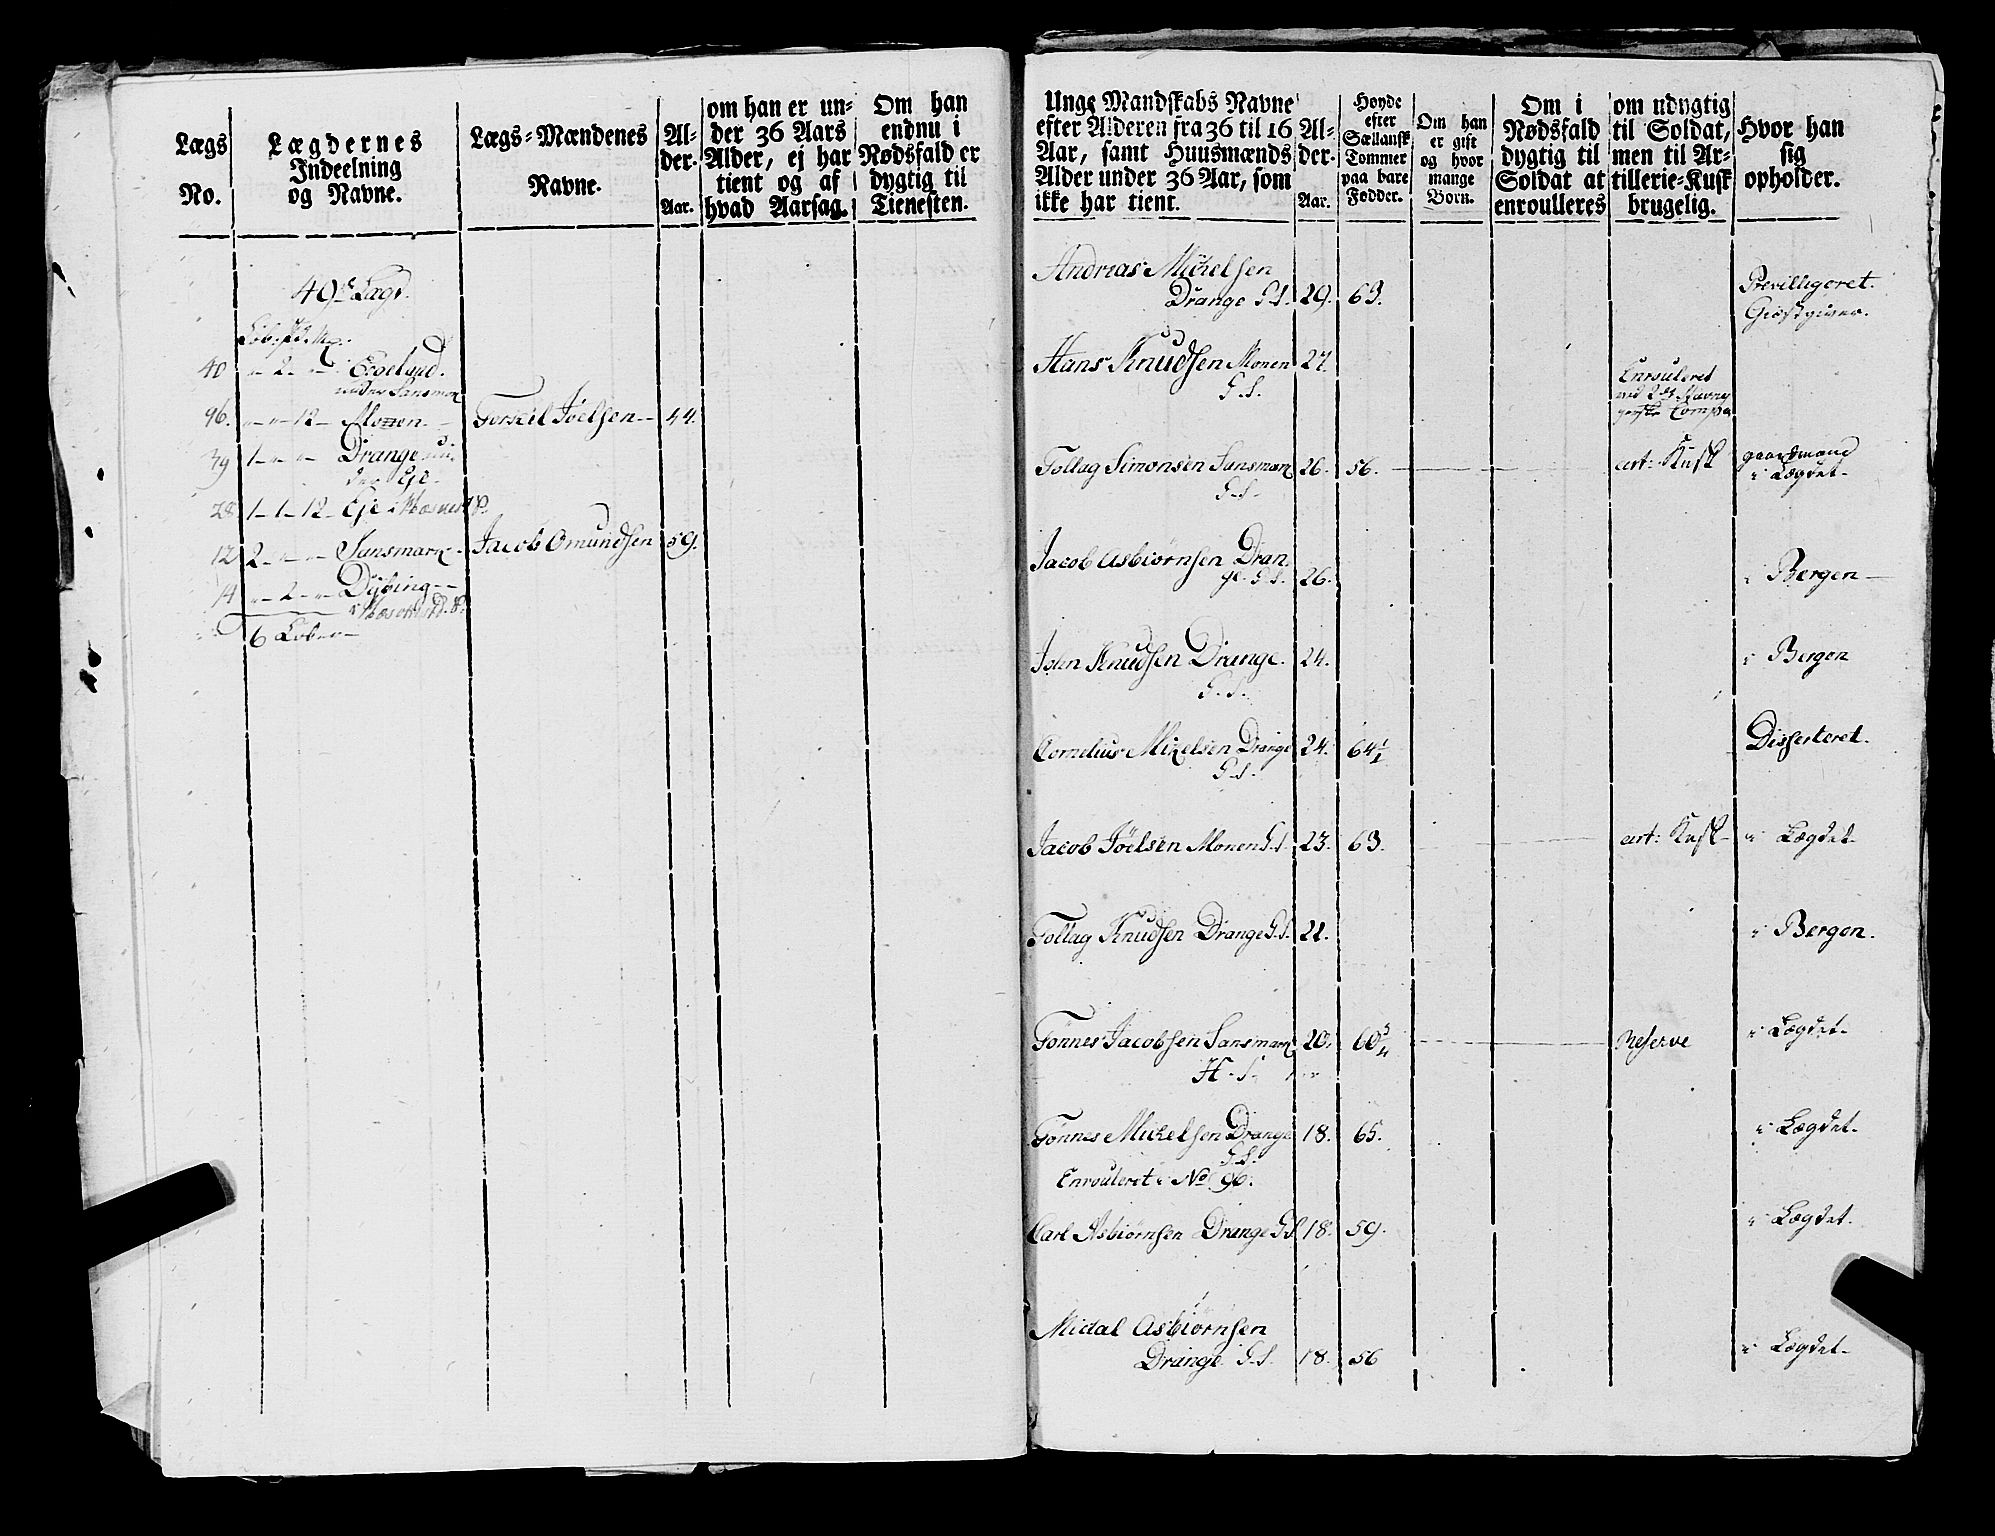 Lægs
No.
Lægdernes
Indeelning
og Navne.
Lægs-Mændenes
Navne.
Al-
der.
Aar.
om han er un-
der 36 Aars
Alder, ej har
tient og af
hvad Aarsag.
Om han
endnu i
Nødsfald er
dygtig til
Tienesten.
49de Lægd.
40 " 2 "
96. " " 12 Monen Torkil Joelsen 44.
39 1 " " Drange un-
der Eje.
28 1 1 12 Eje
12 2 " " Sansmark Jacob Omundsen 59.
14 " 2 " Dybing
6 Løber
Unge Mandskabs Navne
efter Alderen fra 36 til 16
Aar, samt Huusmænds
Alder under 36 Aar, som
ikke har tient.
Al-
der.
Aar.
Høyde
efter
Sællansk
Tommer
paa bare
Fødder.
Om han
er gift
og hvor
mange
Børn.
Om i
Nødsfald
dygtig til
Soldat at
enroulleres
om udygtig
til Soldat,
men til Ar-
tillerie-Kusk
brugelig.
Hvor han
sig
opholder.
Andreas Mikelsen
Drange G.S. 29. 63. Previlligeret
Giestgiver.
Hans Knudsen Monen 27.
G.S. Enrouleret
Tollag Simonsen Sansmark 26. 56. art: Kusk gaardmand
G.S. i Lægdet
Jacob Asbiørnsen Dran
ge. G.S. 26. i Bergen
Knudsen Drange. 24. i Bergen
G.S.
Cornelius Mikelsen Drange 24. 64½ Disserteret.
G.S.
Jacob Joelsen Monen G.S. 23. 63. art: Kusk i Lægdet
Tollag Knudsen Drange G.S. 21. i Bergen.
Tønnes Jacobsen Sansmark 20. 60¾ Reserve i Lægdet
H. S.
Tønnes Mikelsen Drange 18. 65. i Lægdet
G.S.
Enrouleret i No 96.
Carl Asbiørnsen Drange G.S. 18. 59. i Lægdet.
Asbiørnsen
Drange G.S. 18. 56 i Lægdet